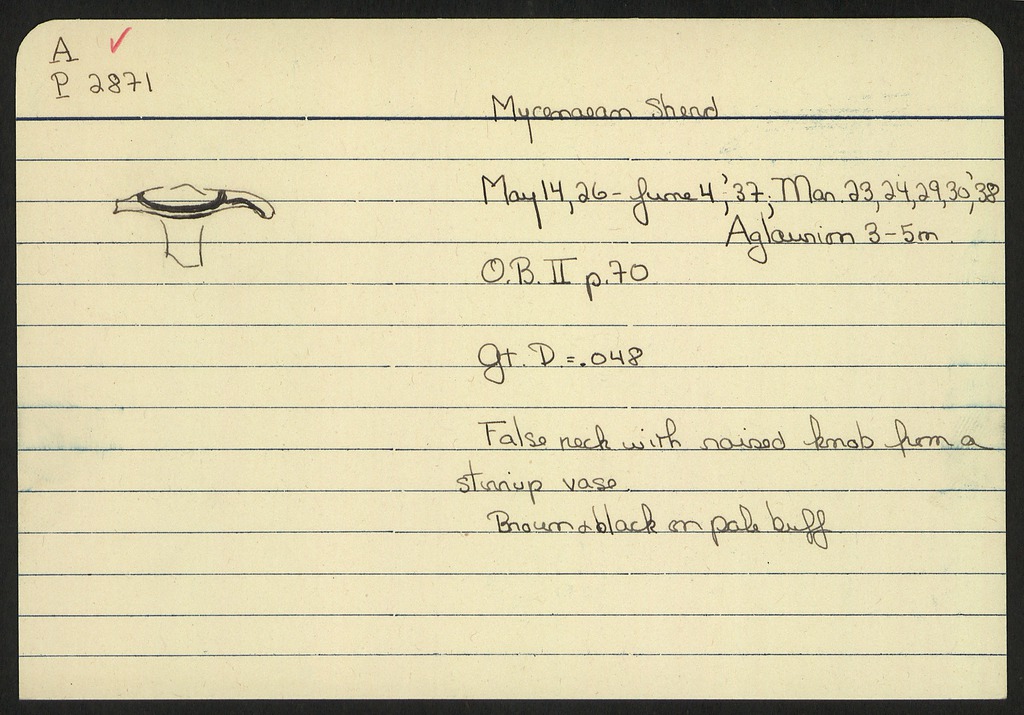 A
P 2871
Mycenaean Sherd
May 14, 26 - June 4, '37; Mar. 23, 24, 29, 30, '38
Aglaurion 3-5m.
O.B. II p.70
Gt. D. = .048
False neck with raised knob from a
stirrup vase.
Brown & black on pale buff